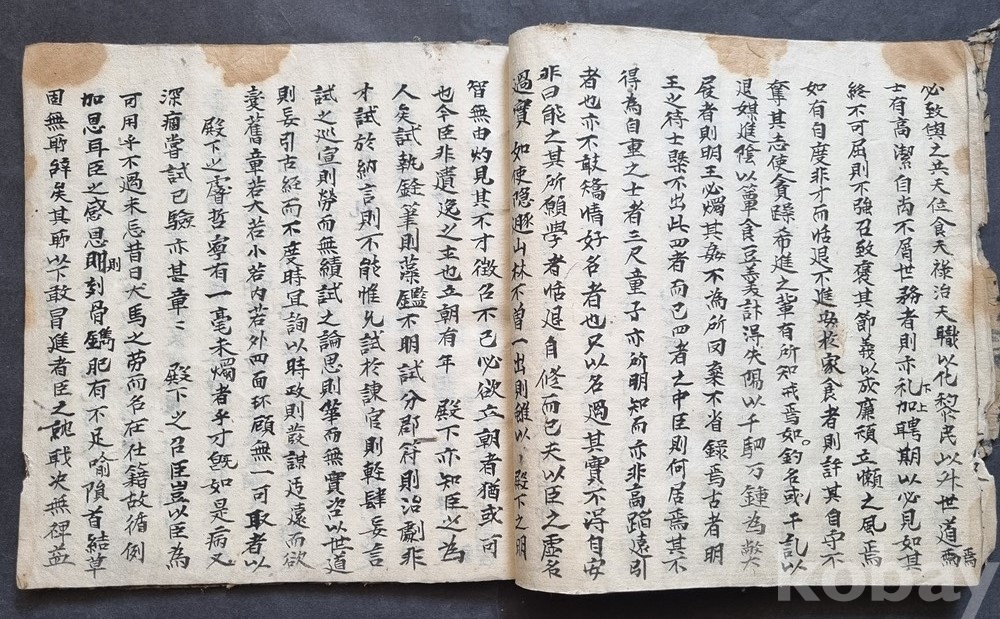 必致與之共天位食天祿治天職以化黎民以升世道焉
焉
士有高潔自尚不屑世務者則亦礼加聘期以必見如其
下上
終不可屈則不強召致褒其節義以成廉頑立懶之風焉
如有自度非才而恬退不進安於家食者則許其自守不
奪其志使貪躁希進之輩有所知戒焉如釣名或干乱以
退媒進陰以簞食豆羹計得失陽以千駟万鍾為弊
屐者則明王必燭其姦不為所罔棄不省録焉古者明
王之待士槩不出此四者而已四者之中臣則何居焉其不
得為自重之士者三尺童子亦所明知而亦非高蹈遠引
者也亦不敢矯情好名者也又以名過其實不得自安
非曰能之其所願學者恬退自修而已夫以臣之虛名
過實如使隱遯山林不曾一出則雖以殿下之明
智無由灼見其不才徵召不已必欲立朝者猶或可
也今臣非遺逸之士也立朝有年 殿下亦知臣之為
人矣試執銓筆則藻鑑不明試分郡符則治劇非
才試於納言則不能惟允試於諫官則輕肆妄言
試之巡宣則勞而無績試之論思則華而無實咨以世道
則妄引古經而不度時宜詢以時政則發謀迂遠而欲
變舊章若大若小若内若外四面环顧無一可取者以
殿下之睿哲寧有一毫未燭者乎才旣如是病又
深痼嘗試已驗亦甚章〻 殿下之召臣豈以臣為
可用乎不過未忘昔日犬馬之劳而名在仕籍故循例
加恩耳臣之感恩則刻骨鐫肥有不足喻隕首結草
則
固無所辭矣其所以不敢冒進者臣之
戰決無裨益